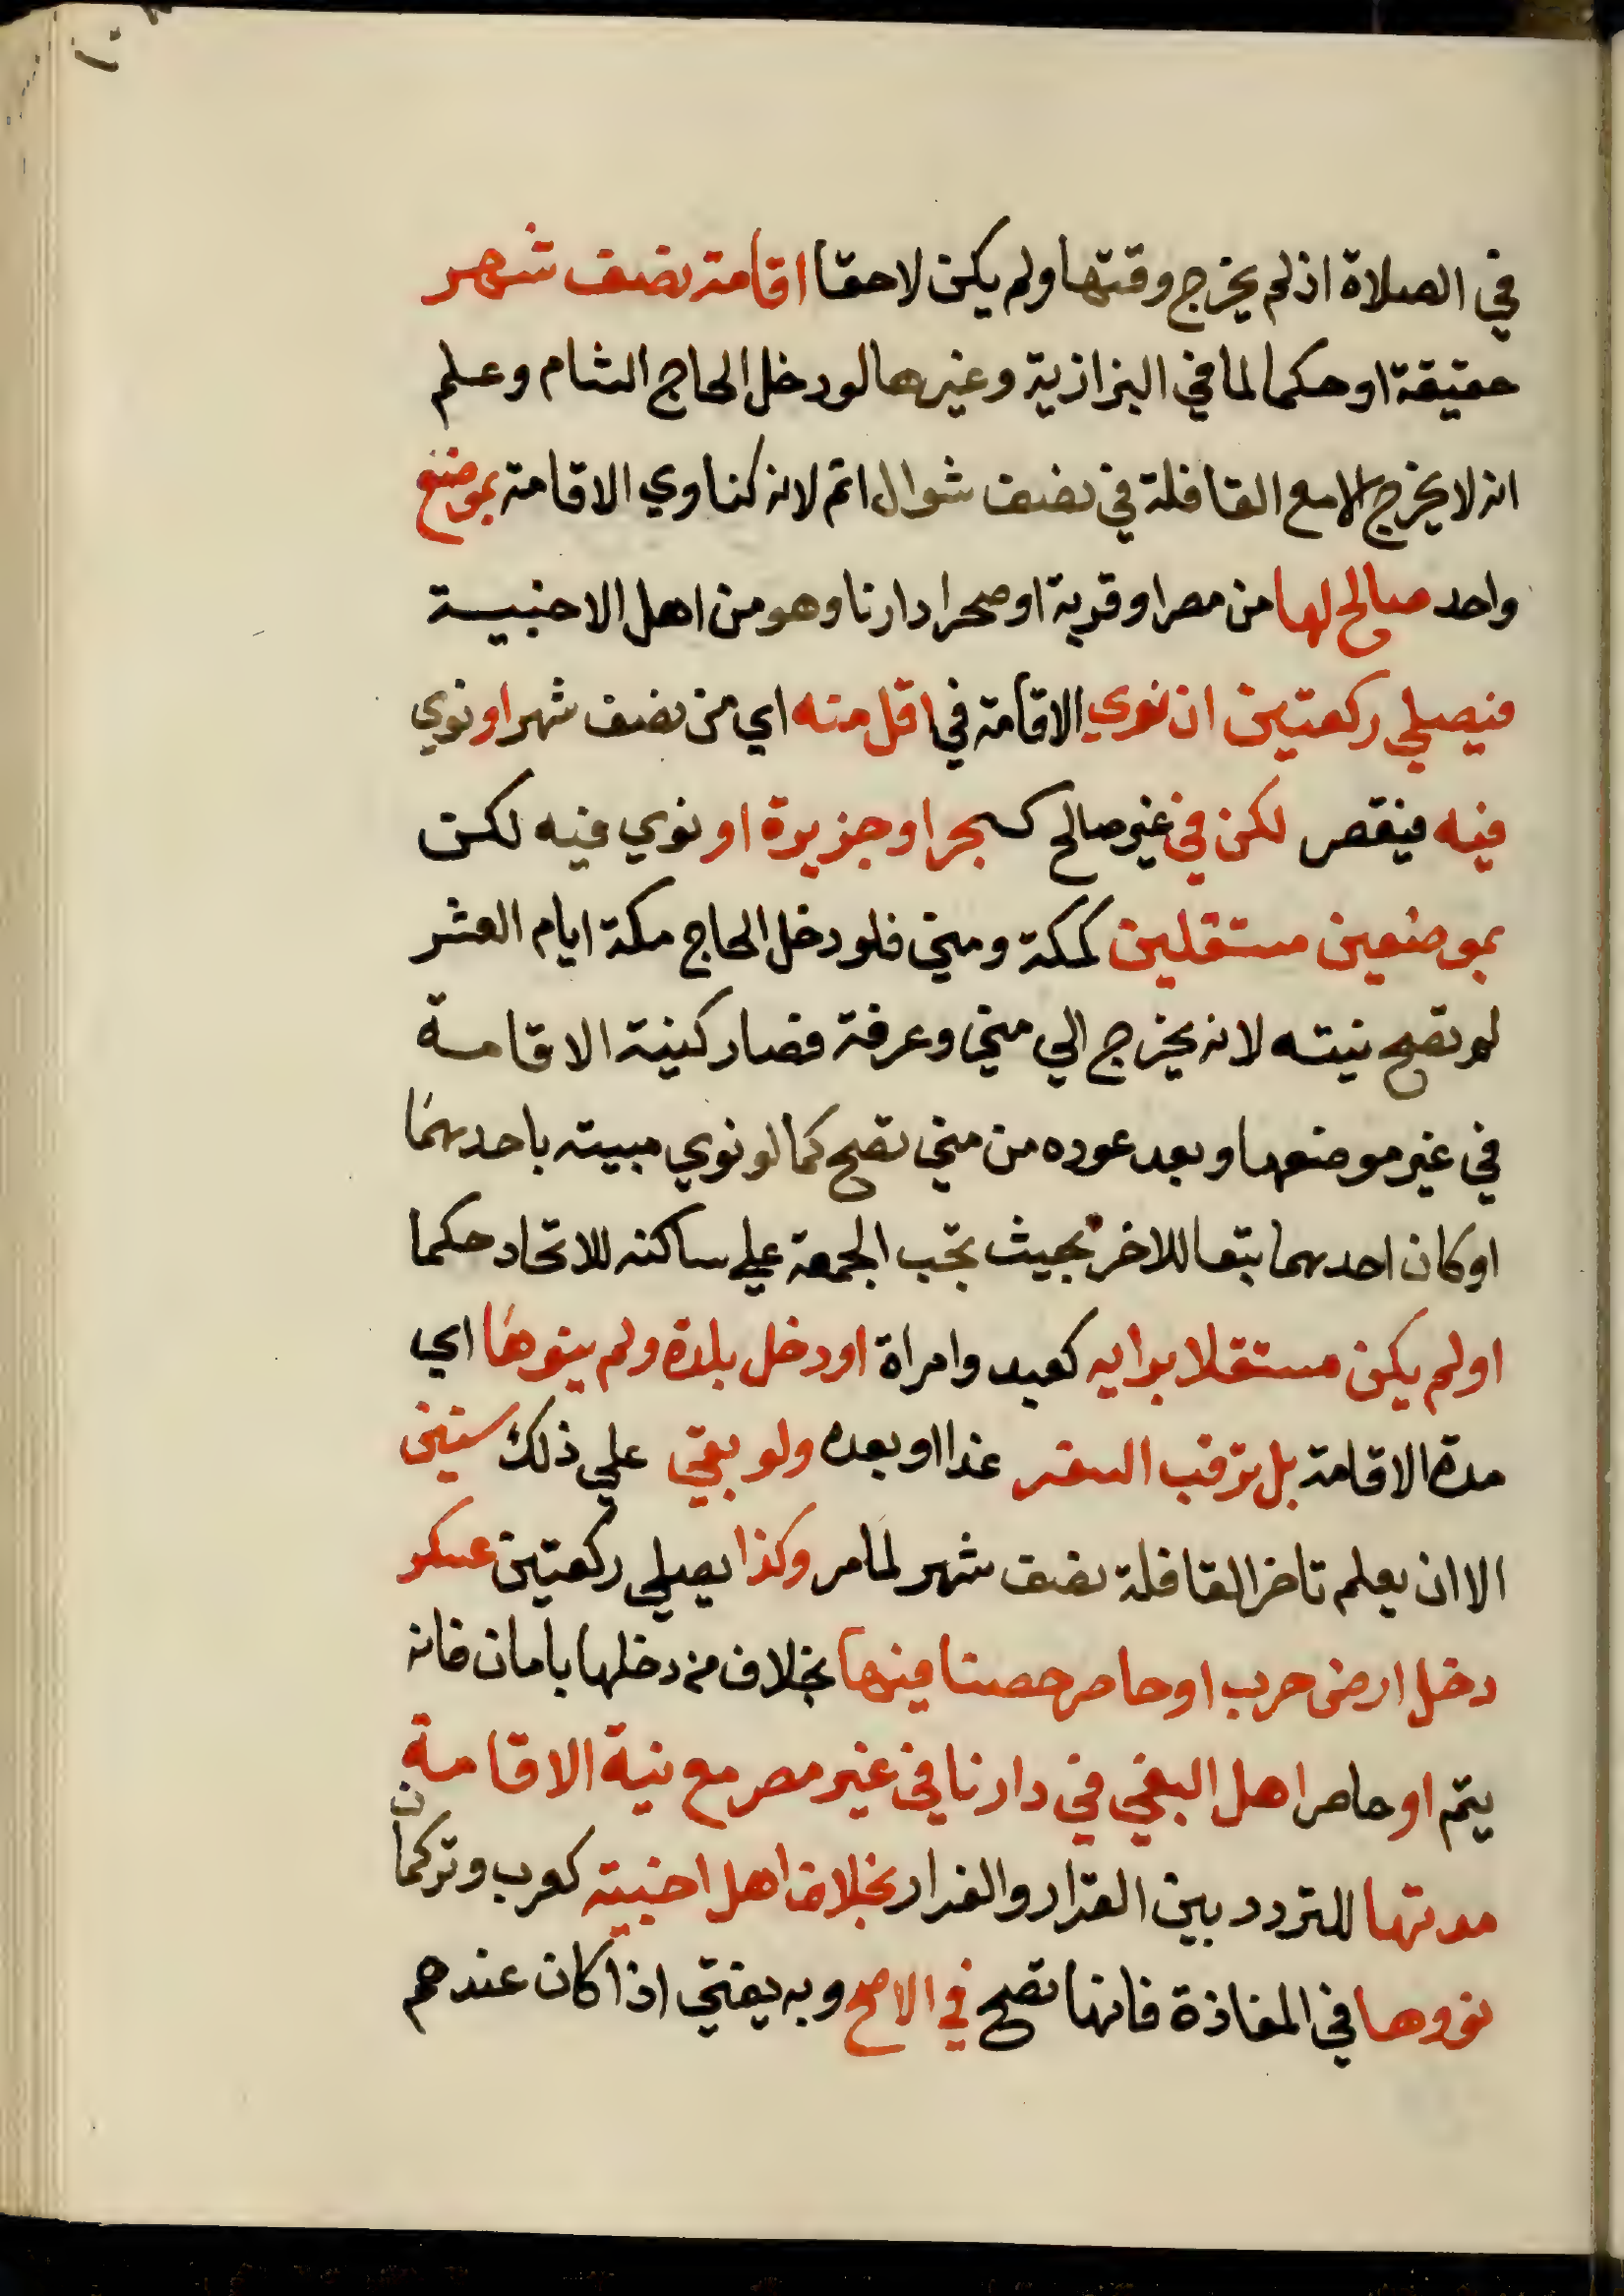 في الصلاة اذ لم يخرج وقتها ولم يكن لاحقا اقامة نصف شهر
حقيقة او حكما لما في البزازية وغيرها لو دخل الحاج الشام وعلم
انه لا يخرج الا مع القافلة في نصف شوال اتم لانه كناوي الاقامة بموضع
واحد صالح لها من مصر او قرية او صحرا دارنا وهو من اهل الاخبية
فيصلي ركعتين ان نوي الاقامة في اقل منه اي من نصف شهر او نوي
فيه فيقصر لكن في غير صالح كبحر او جزيرة او نوي فيه لكن
بموضعين مستقلين كمكة ومني فلو دخل الحاج مكة ايام العشر
لم تصح نيته لانه يخرج الي مني وعرفة فصار كنية الاقامة
في غير موضعها وبعد عوده من مني تصح كما لو نوي مبيته باحدهما
او كان احدهما تبعا للاخر بحيث تجب الجمعة علي ساكنه للاتحاد حكما
او لم يكن مستقلا برايه كعبد وامراة او دخل بلدة ولم ينوها اي
مدة الاقامة بل ترقب السفر غدا او بعده ولو بقي علي ذلك سنين
الا ان يعلم تاخر القافلة نصف شهر لما مر وكذا يصلي ركعتين عسكر
دخل ارض حرب او حاصر حصنا فيها بخلاف من دخلها بامان فانه
يتم او حاصر اهل البغي في دارنا في غير مصر مع نية الاقامة
مدتها للتردد بين القرار والفرار بخلاف اهل اخبية كعرب وتركمان
نووها في المفازة فانها تصح في الاصح وبه يفتي اذا كان عندهم